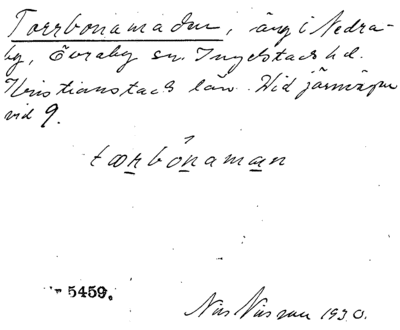 Torrbonamaden, äng i Nedra-
by, Övraby sn. Ingelstads hd.
Kristianstads län. Vid
vid 9.
tœrbónaman
5459.
Nils Nilsson 1930.